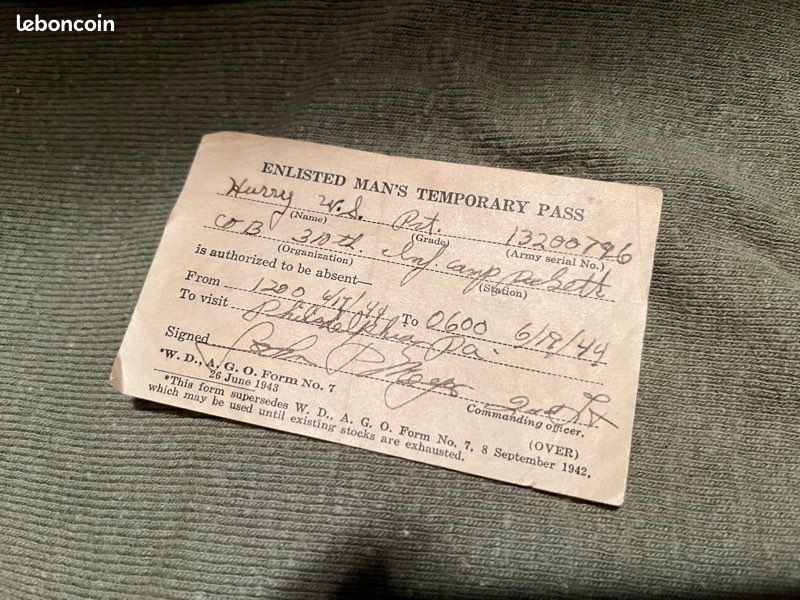 leboncoin
ENLISTED MAN'S TEMPORARY PASS
Hurry W.S. Pvt. 13200796
(Name) (Grade) (Army serial No.)
Co B 310th Inf Camp Pickett
(Organization) (Station)
is authorized to be absent—
From 1200 6/17/44 To 0600 6/19/44
To visit Philadelphia Pa.
Signed John P 2nd Lt
Commanding officer.
*W. D., A. G. O. Form No. 7
26 June 1943
(OVER)
*This form supersedes W. D., A. G. O. Form No. 7, 8 September 1942,
which may be used until existing stocks are exhausted.